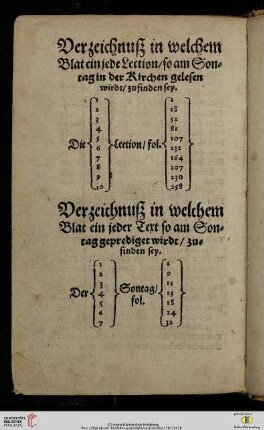 Verzeichnuß in welchem
Blat ein jede Lection/ so am Son-
tag in der Kirchen gelesen
wirdt/ zufinden sey.
Die
1
2
3
4
5
6
7
8
9
10
Lection/ fol.
1
18
52
81
107
132
164
207
230
258
Verzeichnuß in welchem
Blat ein jeder Text so am Son-
tag geprediget wirdt/ zu-
finden sey.
Der
1
2
3
4
5
6
7
Sontag/
fol.
1
9
11
15
18
24
32